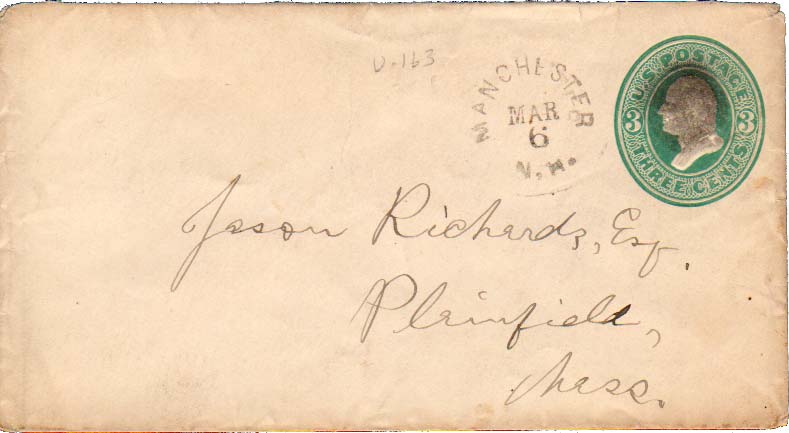 U-163
MANCHESTER
MAR
6
N.H.
U.S. POSTAGE
3 3
THREE CENTS
Jason Richards, Esq.
Plainfield,
Mass.